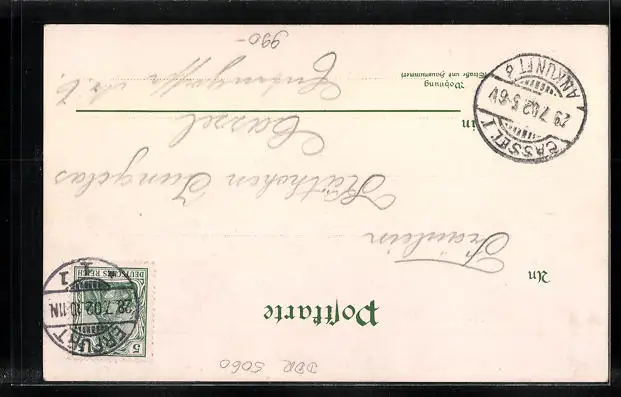 DDR 5060
Postkarte
5
DEUTSCHES REICH
ERFURT
28.7.02.10-11N.
1
An
Fräulein
Käthchen Jungclas
in
Cassel
Wohnung
(Straße und Hausnummer)
CASSEL 1
29.7.02.5-6V.
ANKUNFT.6
990-